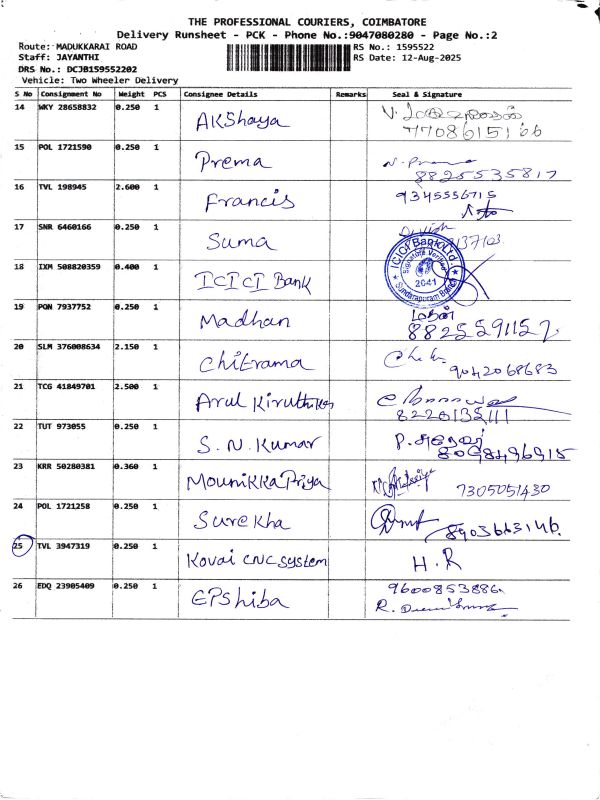 THE PROFESSIONAL COURIERS, COIMBATORE
Delivery Runsheet - PCK - Phone No.:9047080280 - Page No.:2
Route: MADUKKARAI ROAD RS No.: 1595522
Staff: JAYANTHI RS Date: 12-Aug-2025
DRS No.: DCJB159552202
Vehicle: Two Wheeler Delivery
S No Consignment No Weight PCS Consignee Details Remarks Seal & Signature
14 WKY 28658832 0.250 1 Akshaya
7708615166
15 POL 1721590 0.250 1 Prema
8825535817
16 TVL 198945 2.600 1 Francis 9345556715
17 SNR 6460166 0.250 1 Suma
18 IXM 508820359 0.400 1 ICICI Bank
ICICI Bank Ltd.
Signature Verified
2041
Sundarapuram Branch
19 PON 7937752 0.250 1 Madhan
8825591152
20 SLM 376008634 2.150 1 Chitrama
9042068683
21 TCG 41849701 2.500 1 Arul Kiruthika
8220132111
22 TUT 973055 0.250 1 S.N. Kumar
8098496915
23 KRR 50280381 0.360 1 Mounikka Priya 7305051430
24 POL 1721258 0.250 1 Surekha
8903663146
25 TVL 3947319 0.250 1 Kovai CNC System H.R
26 EDQ 23905409 0.250 1 EPShiba 9600853886